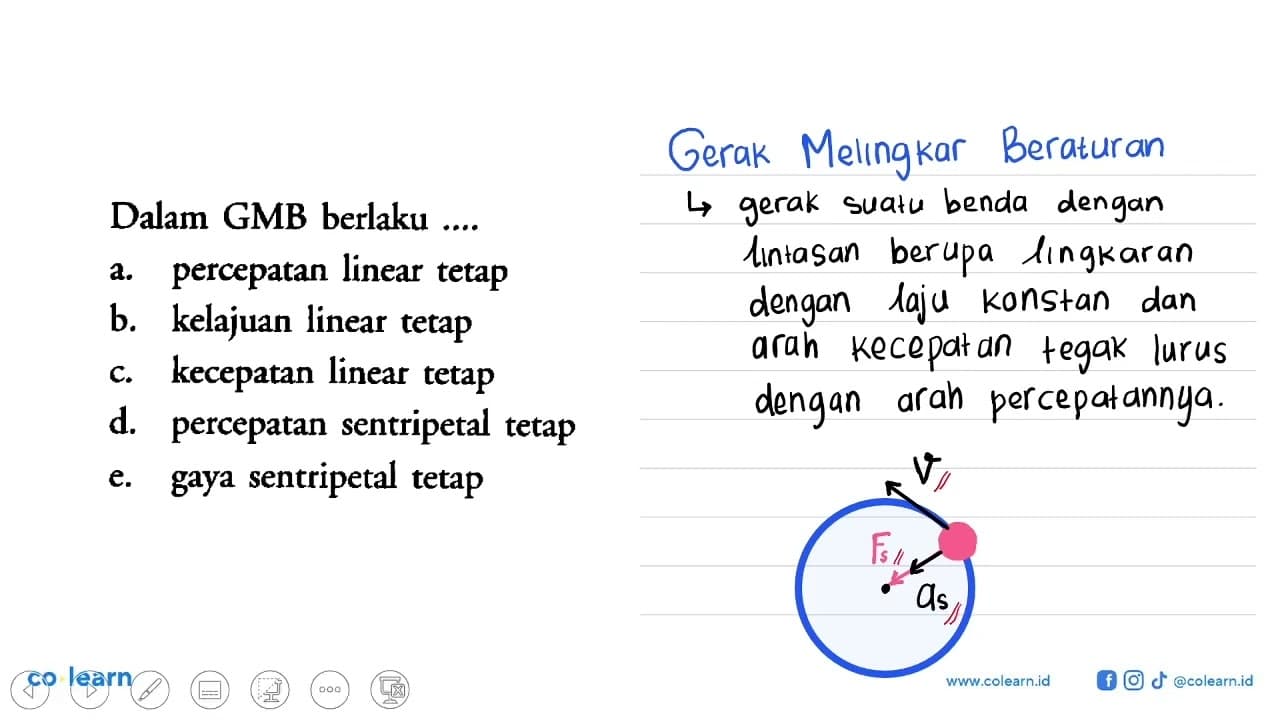 Dalam GMB berlaku ....
a. percepatan linear tetap
b. kelajuan linear tetap
c. kecepatan linear tetap
d. percepatan sentripetal tetap
e. gaya sentripetal tetap
Gerak Melingkar Beraturan
↳ gerak suatu benda dengan
lintasan berupa lingkaran
dengan laju konstan dan
arah kecepatan tegak lurus
dengan arah percepatannya.
V
Fs
as
co learn
www.colearn.id
@colearn.id